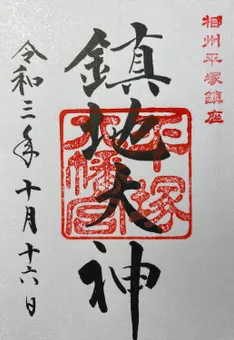 相州平塚鎮座
鎮地大神
平塚八幡宮
令和三年十月十六日